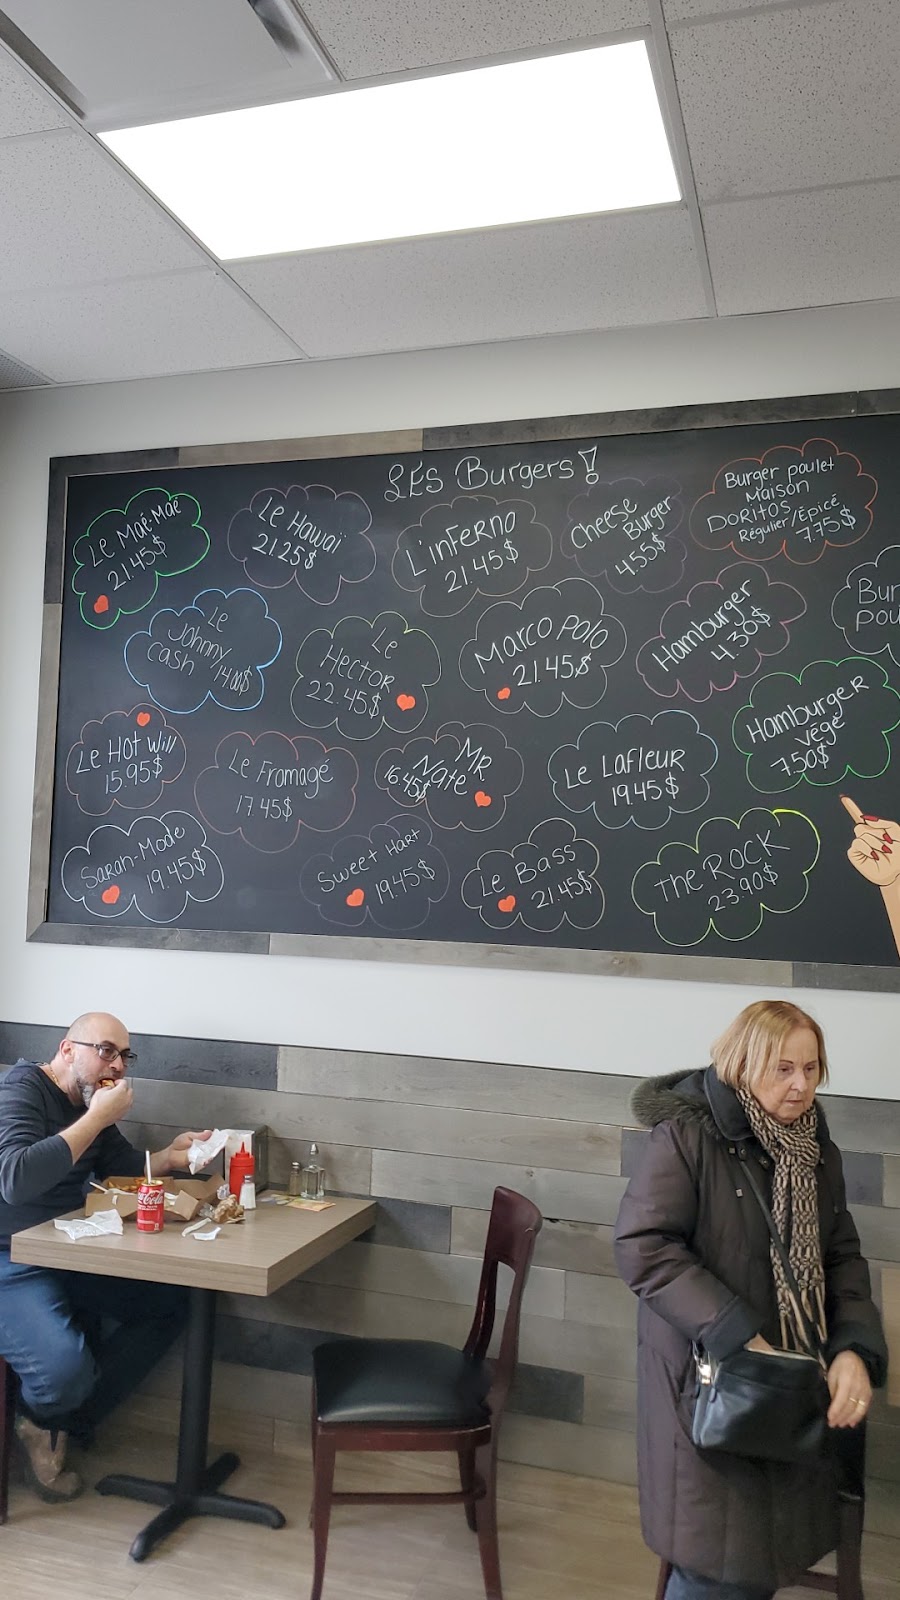 LES Burgers!
Le Maé-Maé
21.45$
Le Hawaï
21.25$
L'inFerno
21.45$
Cheese
Burger
4.55$
Burger poulet
Maison
DORITOS
Régulier/Épicé
7.75$
Le
Johnny
Cash
14.00$
Le
Hector
22.45$
Marco Polo
21.45$
Hamburger
4.30$
Bur
pou
Le Hot Will
15.95$
Le Fromagé
17.45$
MR
Nate
16.45$
Le LaFleur
19.45$
Hamburger
végé
7.50$
Sarah-Mode
19.45$
Sweet Hart
19.45$
Le Bass
21.45$
the ROCK
23.90$